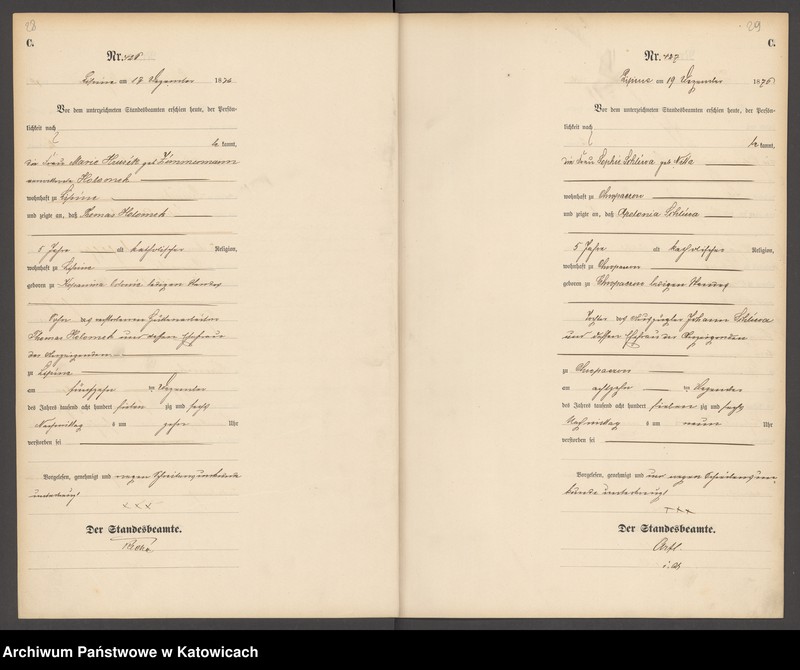 28
C.
Nr. 426
Lipine am 17 Dezember 1876
Vor dem unterzeichneten Standesbeamten erschien heute, der Persön-
lichkeit nach
be kannt,
die Frau Marie Hussek geb. Zimmermann
verwittwete Helomek
wohnhaft zu Lipine
und zeigte an, daß Thomas Helomek
5 Jahre alt katholischer Religion,
wohnhaft zu Lipine
geboren zu Colonie ledigen Standes
Sohn des verstorbenen Hüttenarbeiter
Thomas Helomek und dessen Ehefrau
der Anzeigenden
zu Lipine
am fünfzehn ten Dezember
des Jahres tausend acht hundert sieben zig und sechs
Nachmittag s um zehn Uhr
verstorben sei
Vorgelesen, genehmigt und wegen Schreibensunkunde
unterkreuzt
× × ×
Der Standesbeamte.
29
C.
Nr. 427
Lipine am 19 Dezember 1876
Vor dem unterzeichneten Standesbeamten erschien heute, der Persön-
lichkeit nach
be kannt,
die Frau Sophie Schliwa geb.
wohnhaft zu Chropaczow
und zeigte an, daß Apolonia Schliwa
5 Jahre alt katholischer Religion,
wohnhaft zu Chropaczow
geboren zu Chropaczow ledigen Standes
Tochter des Johann Schliwa
und dessen Ehefrau der Anzeigenden
zu Chropaczow
am achtzehn ten Dezember
des Jahres tausend acht hundert sieben zig und sechs
Nachmittag s um neun Uhr
verstorben sei
Vorgelesen, genehmigt und wegen Schreibensun-
kunde unterkreuzt
× × ×
Der Standesbeamte.
Archiwum Państwowe w Katowicach